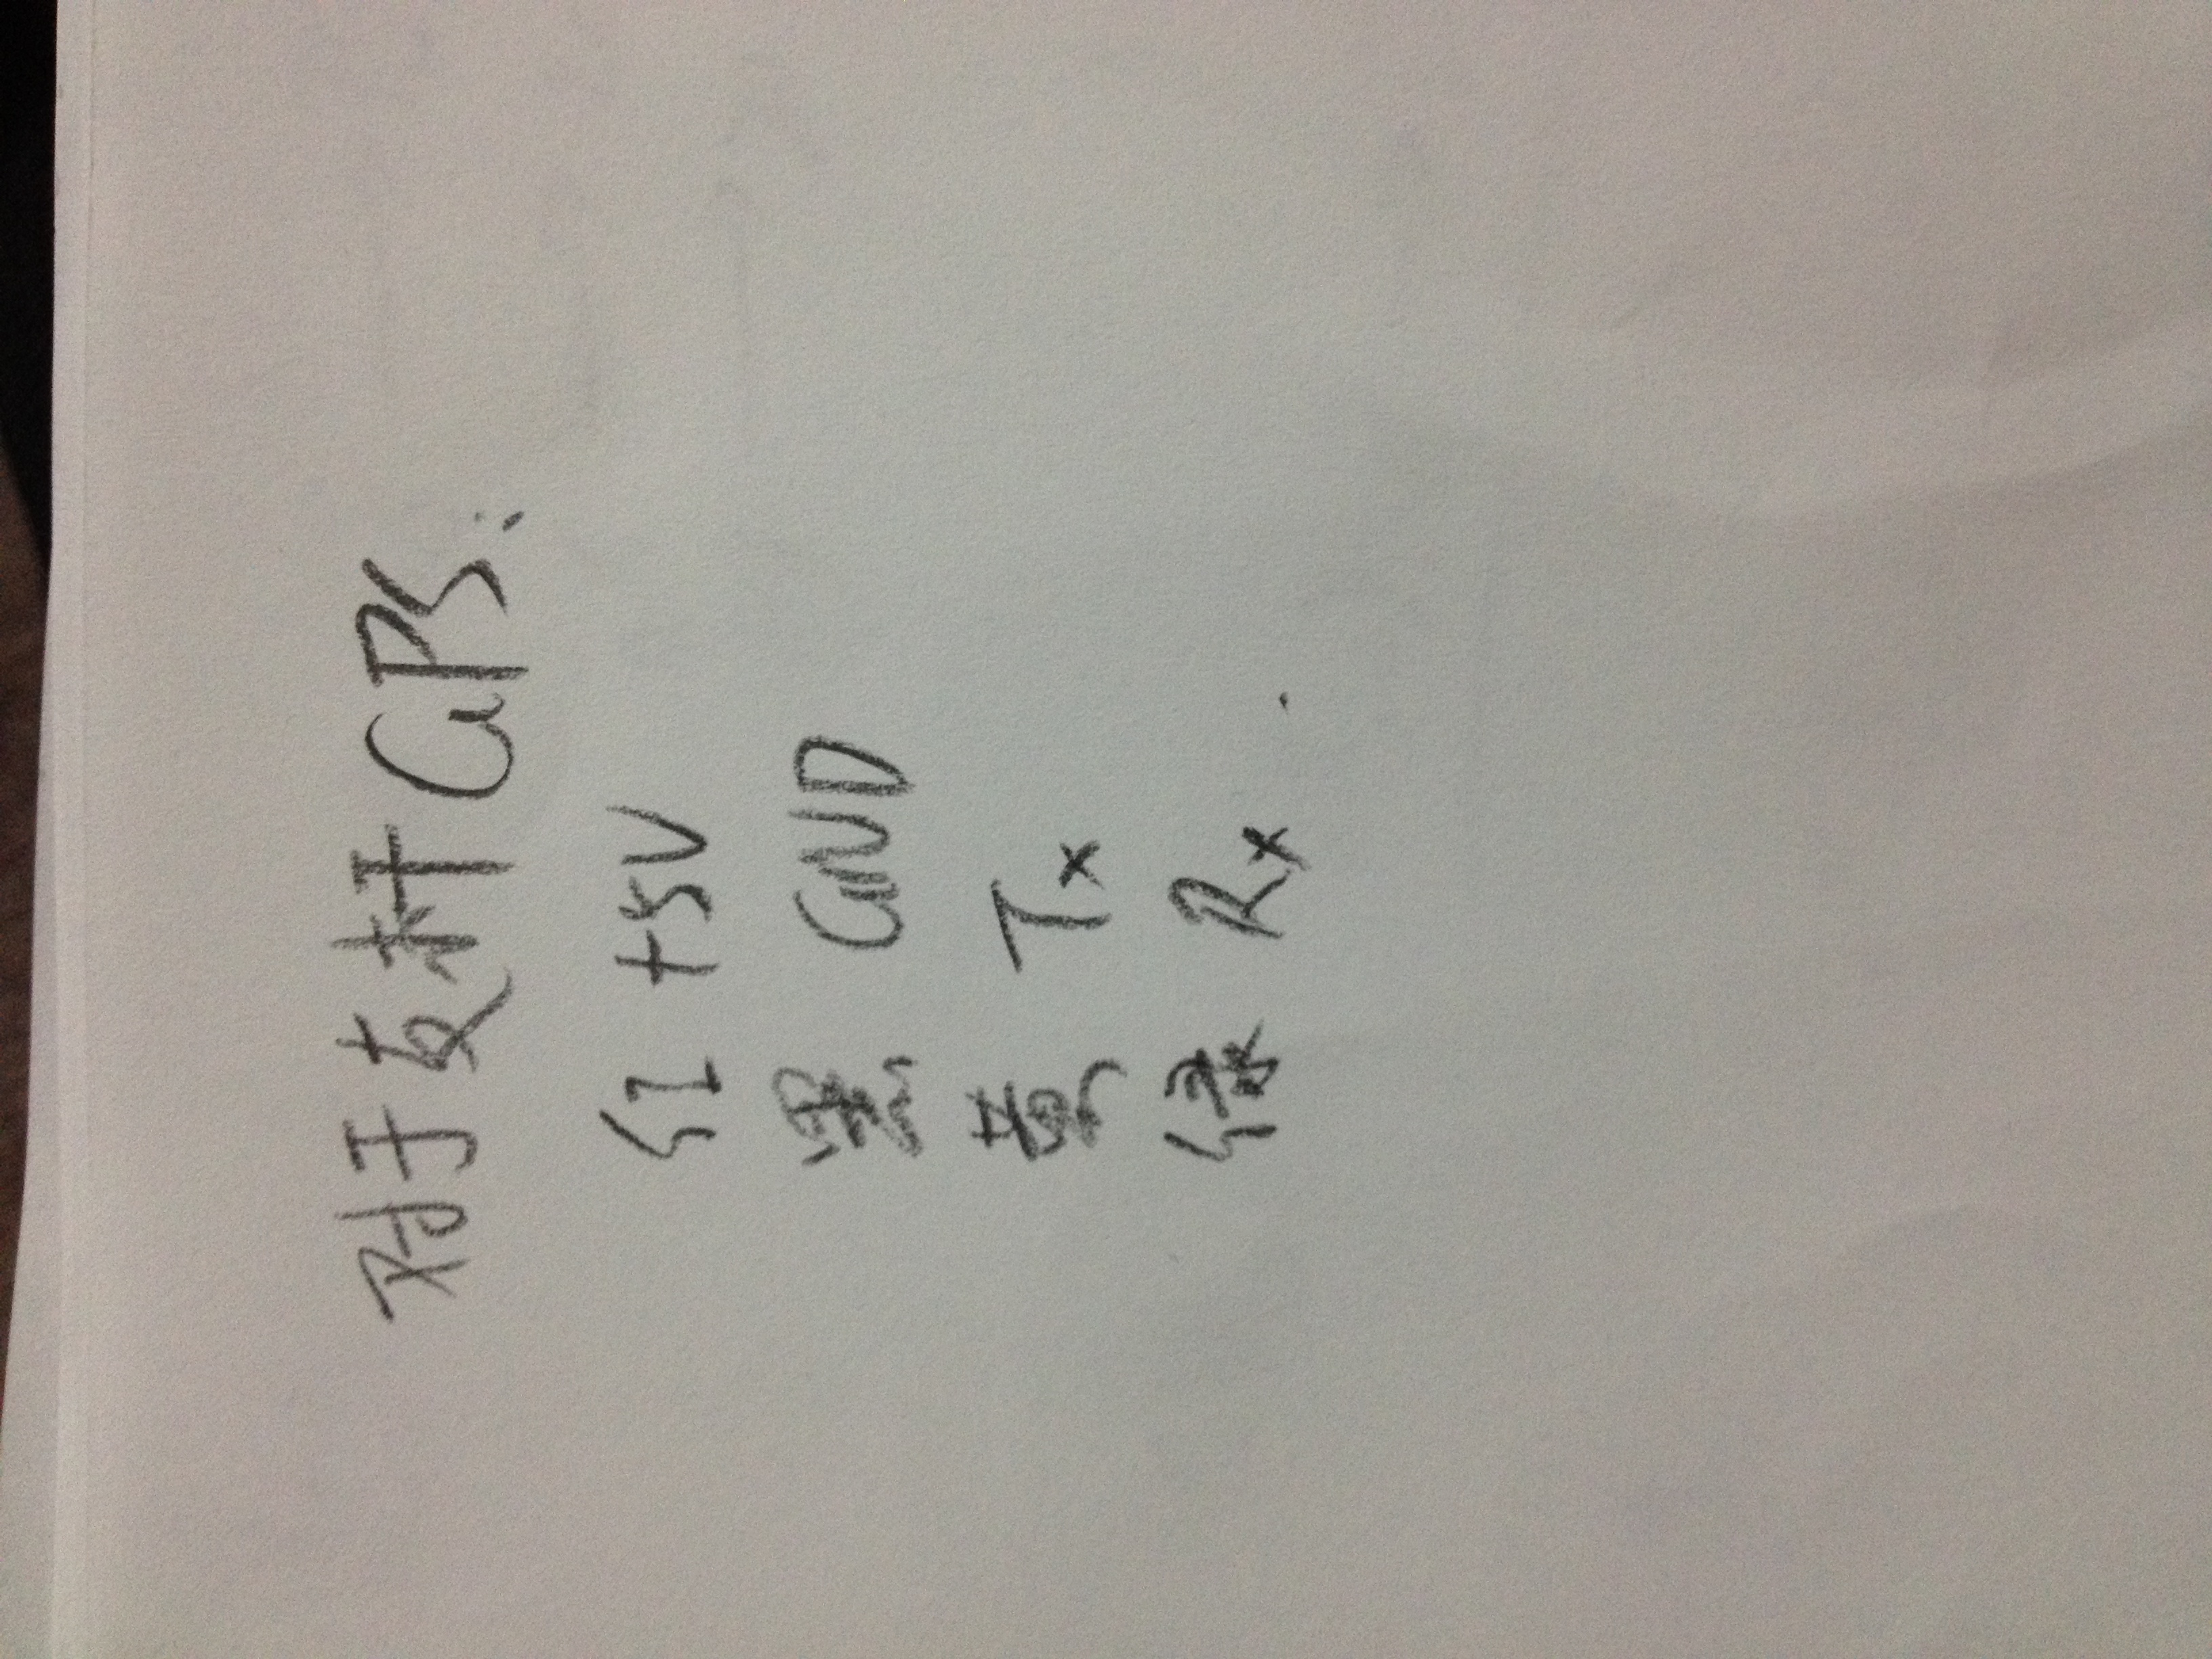 对于支杆GPS:
红 +5V
黑 GND
黄 Tx
绿 Rx .